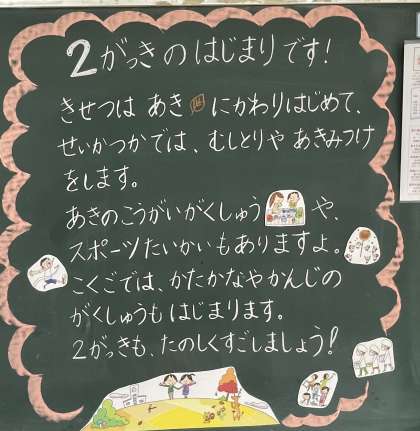 2がっきのはじまりです!
きせつは あき にかわりはじめて、
せいかつかでは、むしとりや あきみつけ
をします。
あきのこうがいがくしゅう や、
スポーツたいかいもありますよ。
こくごでは、かたかなやかんじの
がくしゅうもはじまります。
2がっきも、たのしくすごしましょう!